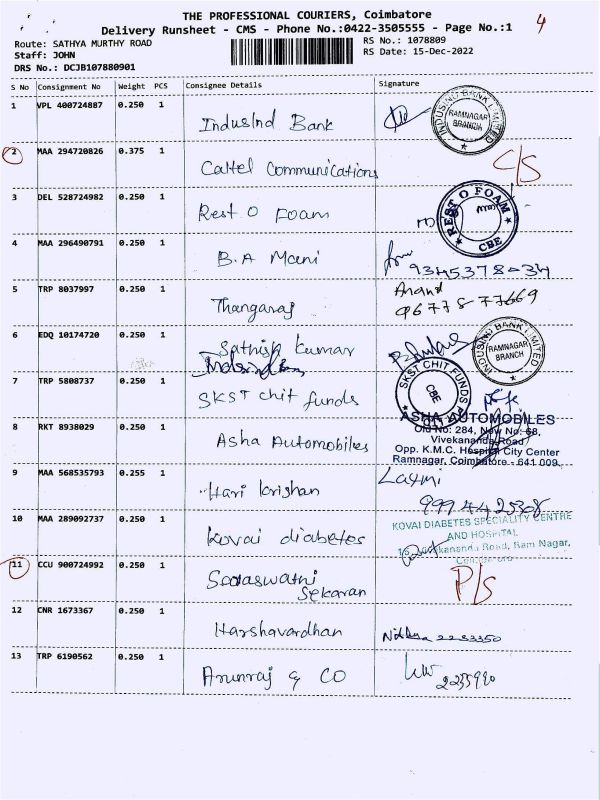 THE PROFESSIONAL COURIERS, Coimbatore
4
Delivery Runsheet - CMS - Phone No.:0422-3505555 - Page No.:1
Route: SATHYA MURTHY ROAD
RS No.: 1078809
Staff: JOHN
RS Date: 15-Dec-2022
DRS No.: DCJB107880901
S No Consignment No Weight PCS Consignee Details Signature
1 VPL 400724887 0.250 1 IndusInd Bank
INDUSIND BANK LIMITED
RAMNAGAR
BRANCH
2 MAA 294720826 0.375 1 Caltel Communications C/S
3 DEL 528724982 0.250 1 Rest O Foam
REST O FOAM
CBE
4 MAA 296490791 0.250 1 B.A Mani
5 TRP 8037997 0.250 1 Thangaraj Anand
96778 77669
6 EDQ 10174720 0.250 1 Sathish kumar
INDUSIND BANK LIMITED
RAMNAGAR
BRANCH
7 TRP 5808737 0.250 1 SKST chit funds
SKST CHIT FUNDS
CBE
8 RKT 8938029 0.250 1 Asha Automobiles
ASHA AUTOMOBILES
Old No: 284, New No: 68,
Vivekananda Road
Opp. K.M.C. Hospital City Center
Ramnagar, Coimbatore - 641 009.
9 MAA 568535793 0.255 1 Hari krishan Laxmi
10 MAA 289092737 0.250 1 kovai diabetes
KOVAI DIABETES SPECIALITY CENTRE
AND HOSPITAL
Road, Ram Nagar,
11 CCU 900724992 0.250 1 Saraswathi
Sekaran
P/S
12 CNR 1673367 0.250 1 Harshavardhan 2233350
13 TRP 6190562 0.250 1 Arunraj & CO
2235990